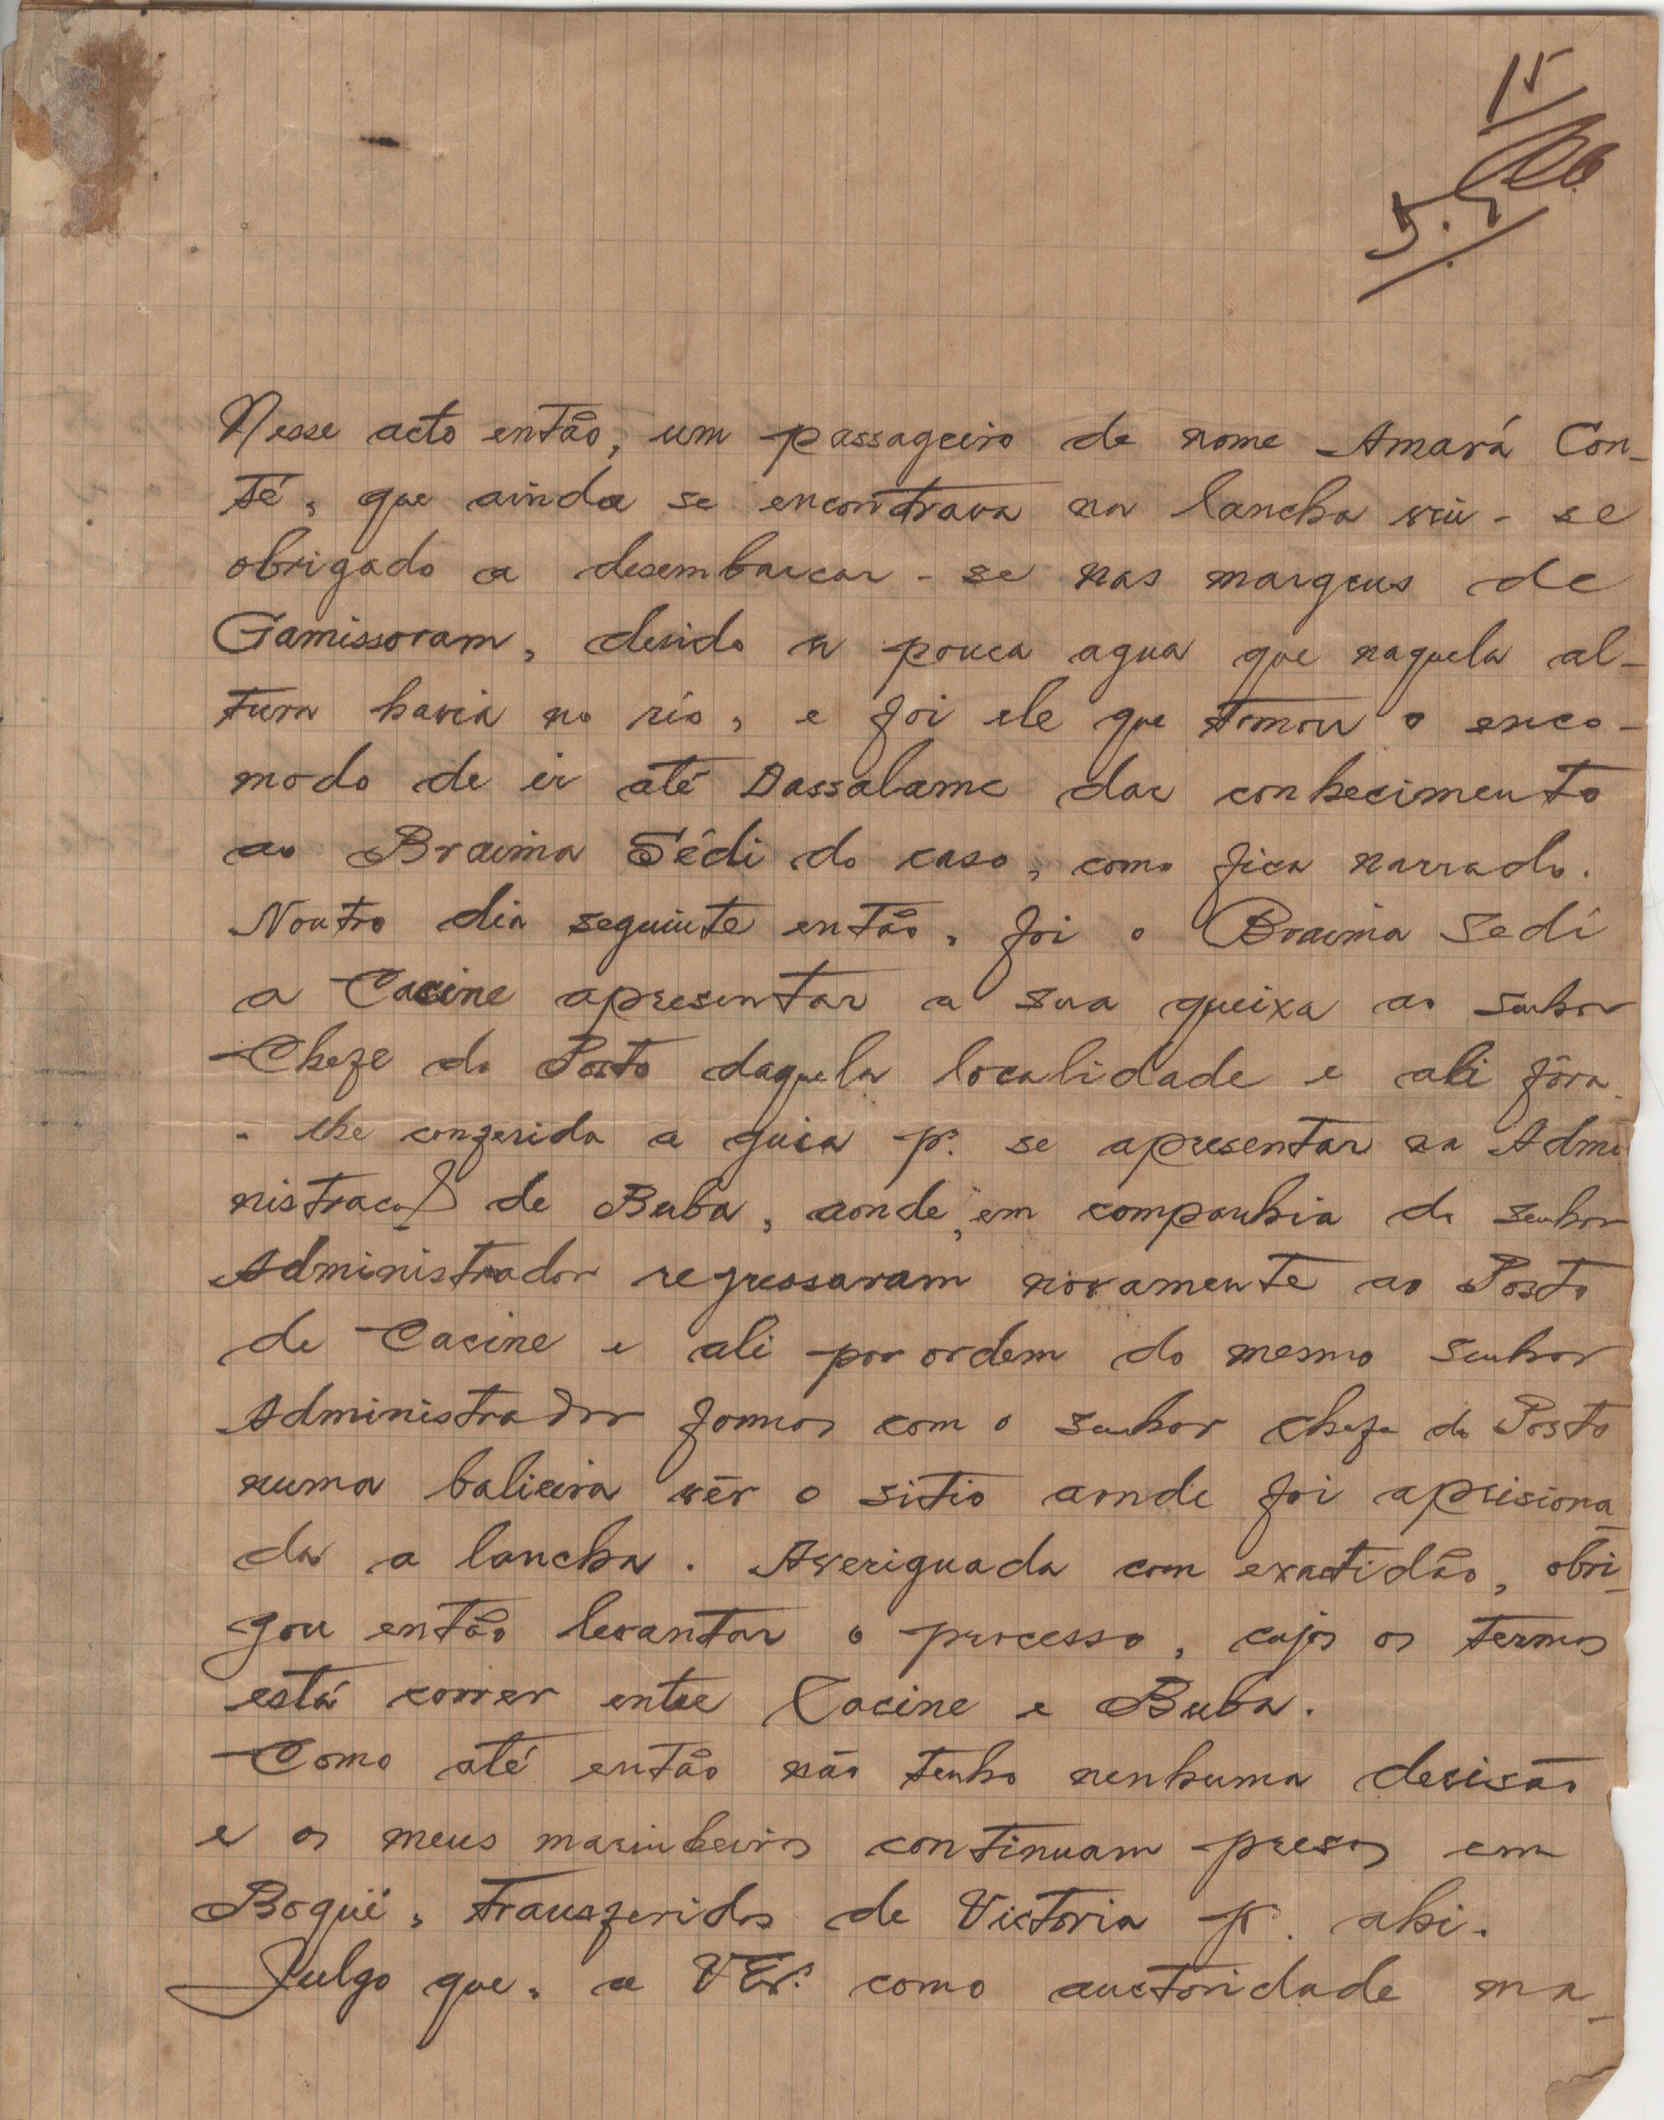 15
5.
Nesse acto então, um passageiro de nome Amará Con-
té, que ainda se encontrava na lancha viu-se
obrigado a desembarcar-se nas margens de
Gamissoram, devido a pouca agua que naquela al-
tura havia no rio, e foi ele que tomou o enco-
modo de ir até Dassalame dar conhecimento
ao Braima Sêdi do caso, como fica narrado.
Noutro dia seguinte então, foi o Braima Sedi
a Cacine apresentar a sua queixa ao senhor
Chefe do Posto daquela localidade e ali fôra
- lhe conferida a guia p.ª se apresentar na Admi
nistração de Buba, aonde, em companhia do senhor
Administrador regressaram novamente ao Posto
de Cacine e ali por ordem do mesmo senhor
Administrador fomos com o senhor chefe do Posto
numa balieira vêr o sitio aonde foi aprisiona-
da a lancha. Averiguada com exactidão, obri-
gou então levantar o processo, cujos os termos
está correr entre Cacine e Buba.
Como até então não tenho nenhuma decisão
e os meus marinheiros continuam presos em
Boquê, transferidos de Victoria p.ª ahi.
Julgo que, a VEx.ª como auctoridade ma-